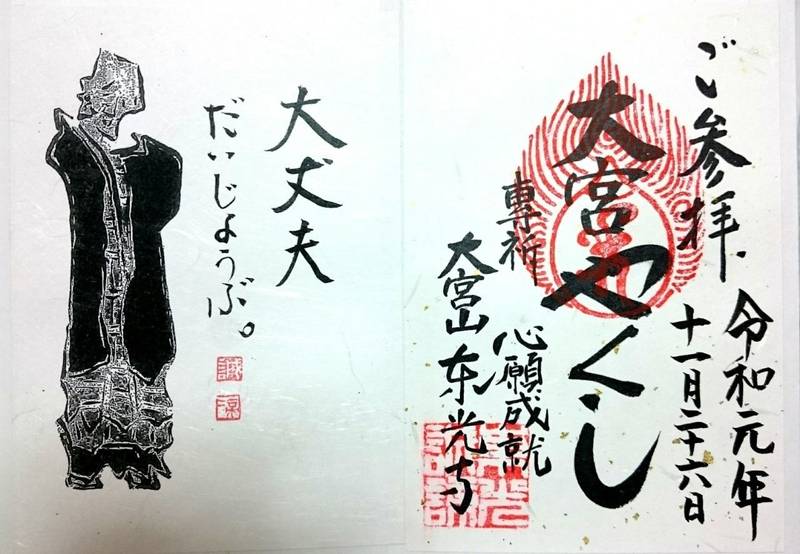 ご参拝
令和元年
十一月二十六日
大宮やくし
専祈
心願成就
大宮山東光寺
大丈夫
だいじょうぶ。